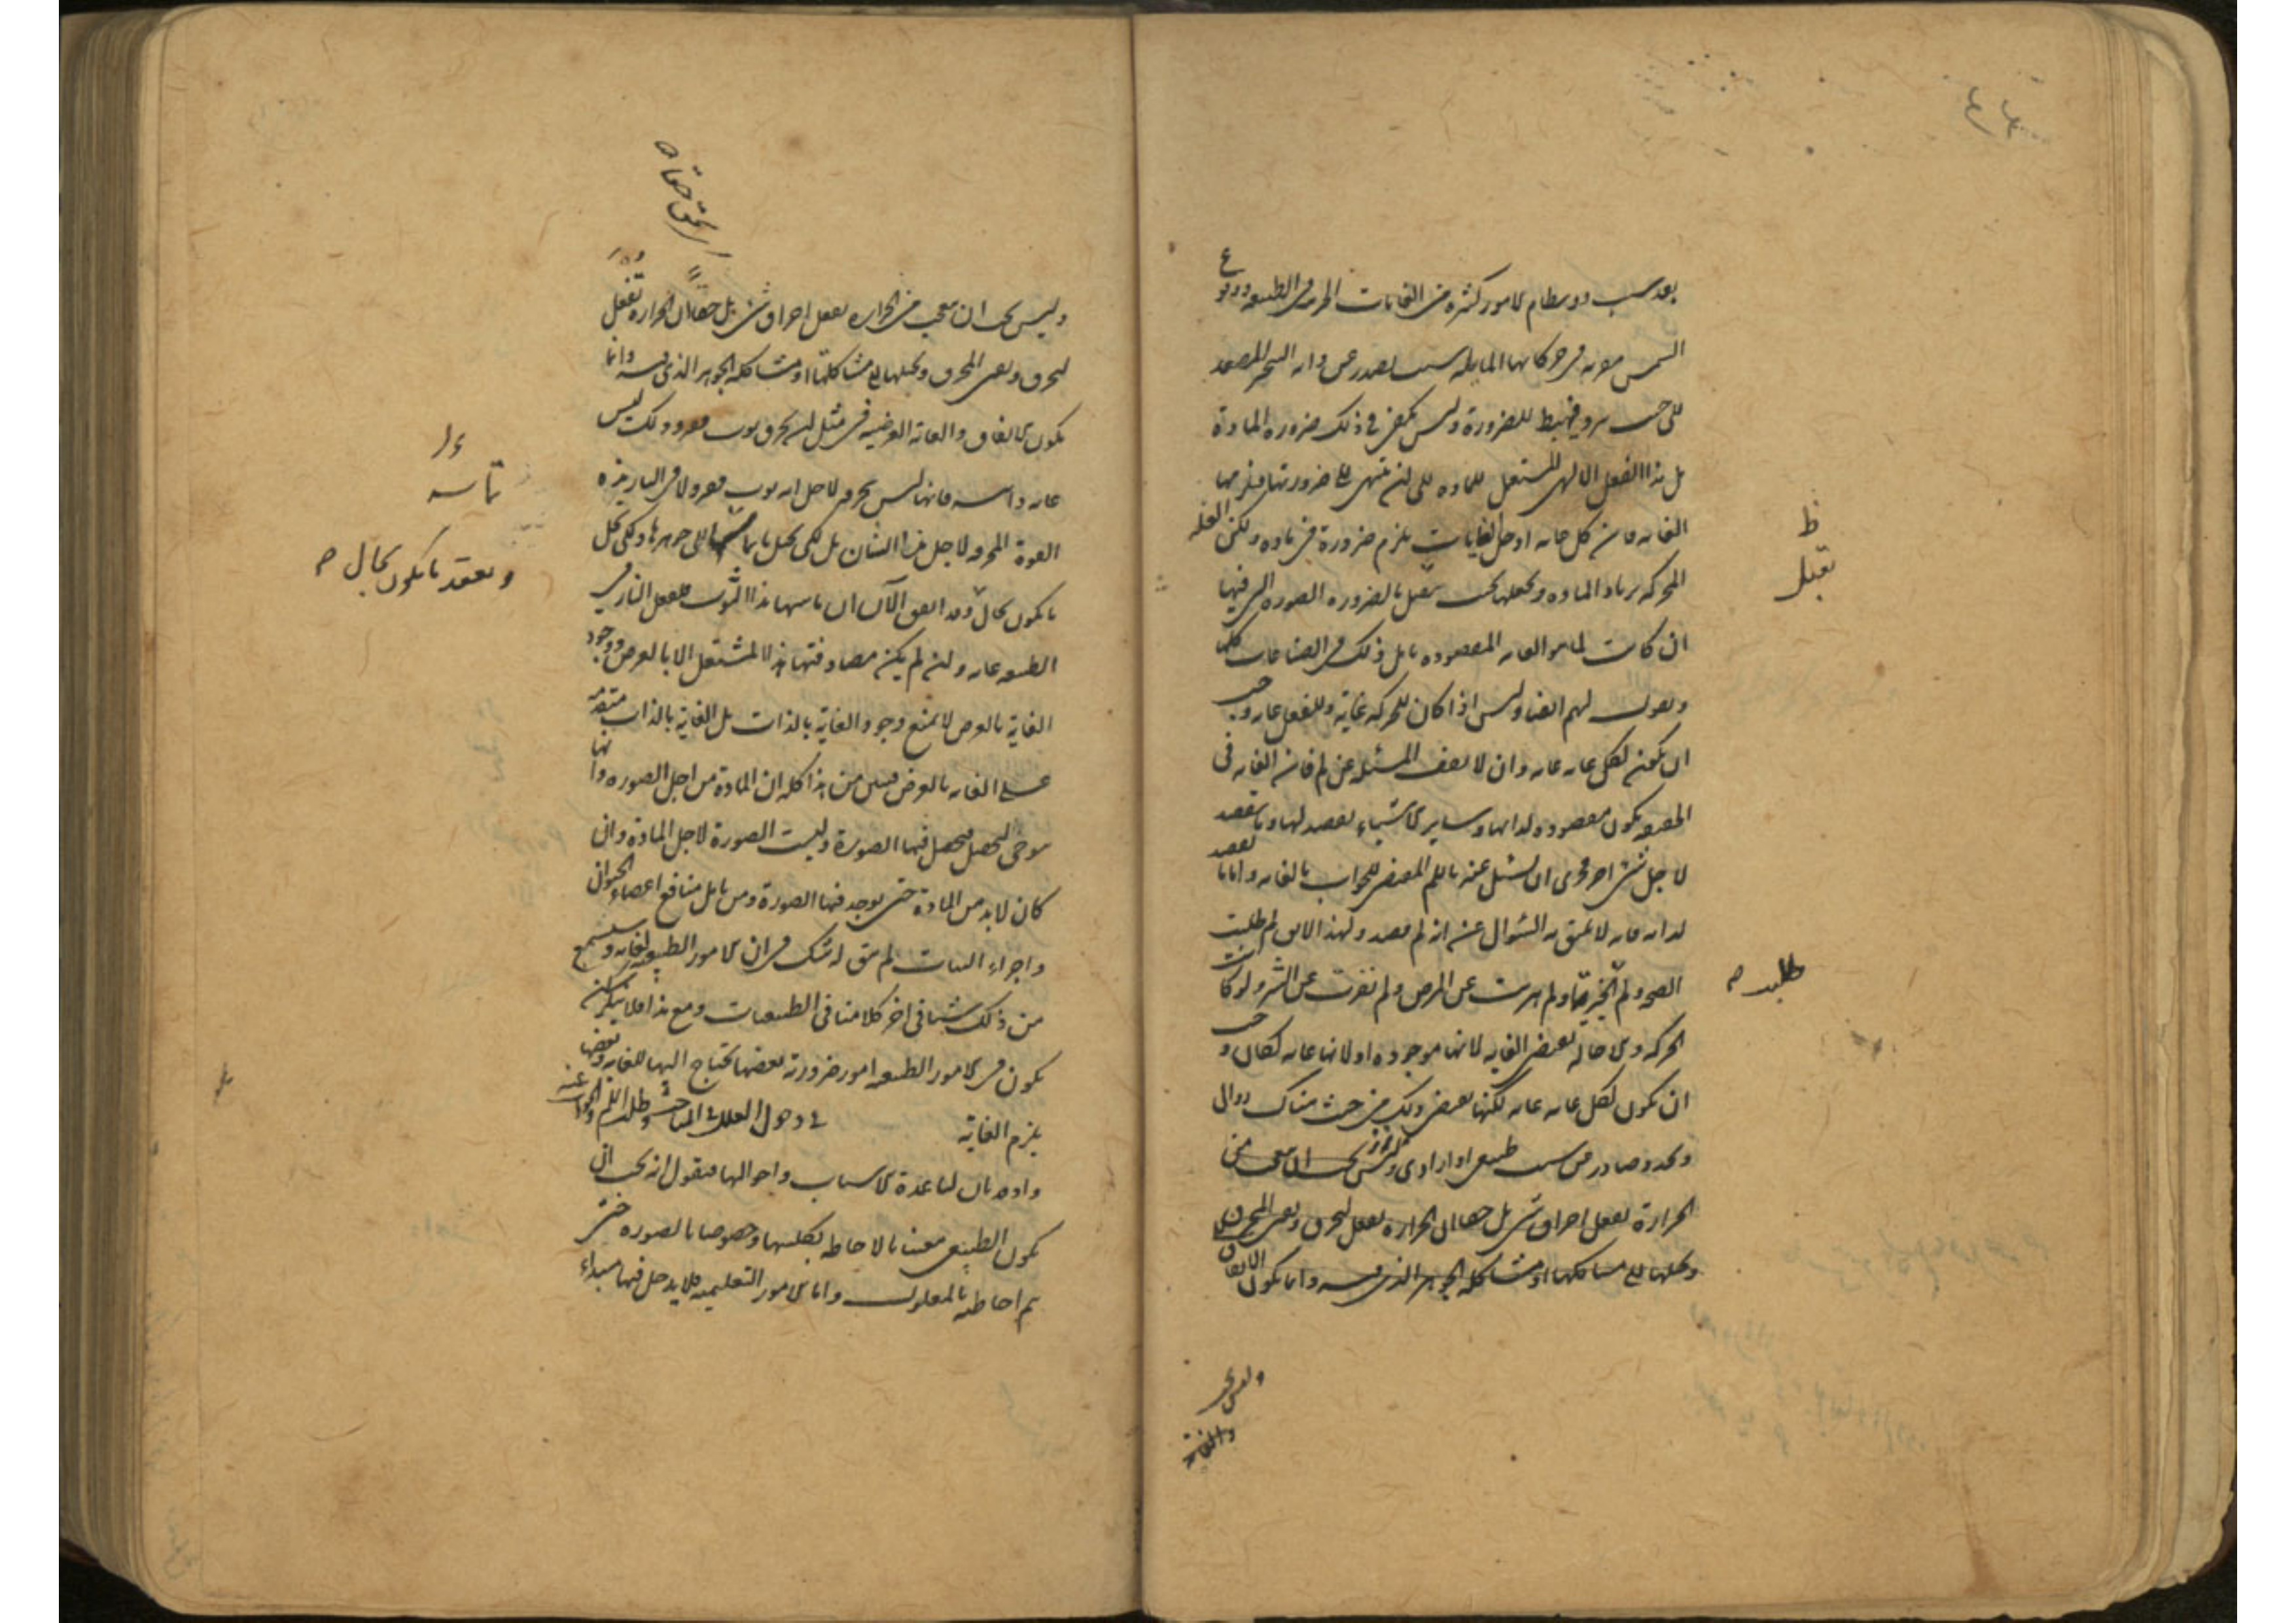 بعد سبب ووسطام لامور كثيرة من الغايات الجزئية في الطبيعة ووقوع
الشمس مقربة في حركاتها المايلة سبب يصدر عن دوامه التبخير المصعد
إلى حيث يبرد فيهبط للضرورة وليس يكفى في ذلك ضرورة المادة
بل هذا الفعل الالهى المستعمل للمادة إلى ان تنتهى الى ضرورتها فيلزمها
الغاية فان كل غاية او جل الغايات يلزم ضرورة في مادة ولكن العلة
المحركة ترتاد المادة وتجعلها بحيث تتصل بالضرورة الصورة التى فيها
ان كانت لما هو الغاية المقصودة تامل ذلك في الصناعات كلها
ونقول لهم ايضا وليس اذا كان للحركة غاية وللفعل غاية وجب
ان يكون لكل غاية غاية وان لا يقف المسئلة عن لم فان الغاية في
الحقيقة يكون مقصودة لذاتها وساير الاشياء يقصد لها وما يقصد
لاجل شئ اخر فحرى ان يسئل عنه باللم المقتضى للجواب بالغاية واما ما يقصد
لذاته فانه لا يليق به السؤال عن انه لم قصد ولهذا لا يقال لم طلبت
الصحة ولم طلبت الخير ولم هربت عن المرض ولم نفرت عن الشر ولو كانت
الحركة والاحالة تقتضى الغاية لانها موجودة او لانها غاية لكان وجب
ان يكون لكل غاية غاية لكنها تقتضى ذلك من حيث هناك زوال
وتجدد صادر من سبب طبيعى او ارادى وليس يجب ان تعجب من
الحرارة تفعل احراق شئ بل حقا ان الحرارة تفعل لتحرق وتفنى المحترق
وتحيلها الى مشاكلتها او مشاكلة الجوهر الذى فيه وانما يكون الاتفاق
ظ
تقبل
طلبت ص
والغاية
وليس يجب ان تعجب من الحرارة تفعل احراق شئ بل حقا ان الحرارة تفعل
لتحرق وتفنى المحترق وتحيلها الى مشاكلتها او مشاكلة الجوهر الذى فيه وانما
يكون الاتفاق والغاية العرضية في مثل ان يحرق ثوب فقير وذلك ليس
غاية ذاتية فانها ليس تحرقه لاجل انه ثوب فقير ولا في النار هذه
القوة المحرقة لاجل هذا الشان بل لكى تحيل ما تماسه الى جوهرها ولكى تحل
ما يكون بحال وقد اتفق الآن ان ماسها هذا الثوب فلفعل النار في
الطبيعة غاية وان لم يكن مصادفتها هذا المشتعل الا بالعرض ووجود
الغاية بالعرض لا يمنع وجود الغاية بالذات بل الغاية بالذات متقدمة
على الغاية بالعرض فبين من هذا كله ان المادة من اجل الصورة وانها
توخى لتحصل فيحصل فيها الصورة وليست الصورة لاجل المادة وان
كان لابد من المادة حتى يوجد فيها الصورة ومن تامل منافع اعضاء الحيوان
واجزاء النبات لم يبق له شك في ان الامور الطبيعية لغاية وستسمع
من ذلك شيئا في اخر كلامنا في الطبيعيات ومع هذا فلا ننكر ان
يكون في الامور الطبيعية امور ضرورية بعضها يحتاج اليها للغاية وبعضها
يلزم الغاية في دخول العلل في المباحث وطلب اللم والجواب عنه
واذ قد بان لنا عدة الاسباب واحوالها فنقول انه يجب ان
يكون الطبيعى معتنيا بالاحاطة بكليتها وخصوصا بالصورة حتى
يتم احاطته بالمعلول واما الامور التعليمية فلا يدخل فيها مبداء
تماسه
وتعقد ما يكون بحال ص